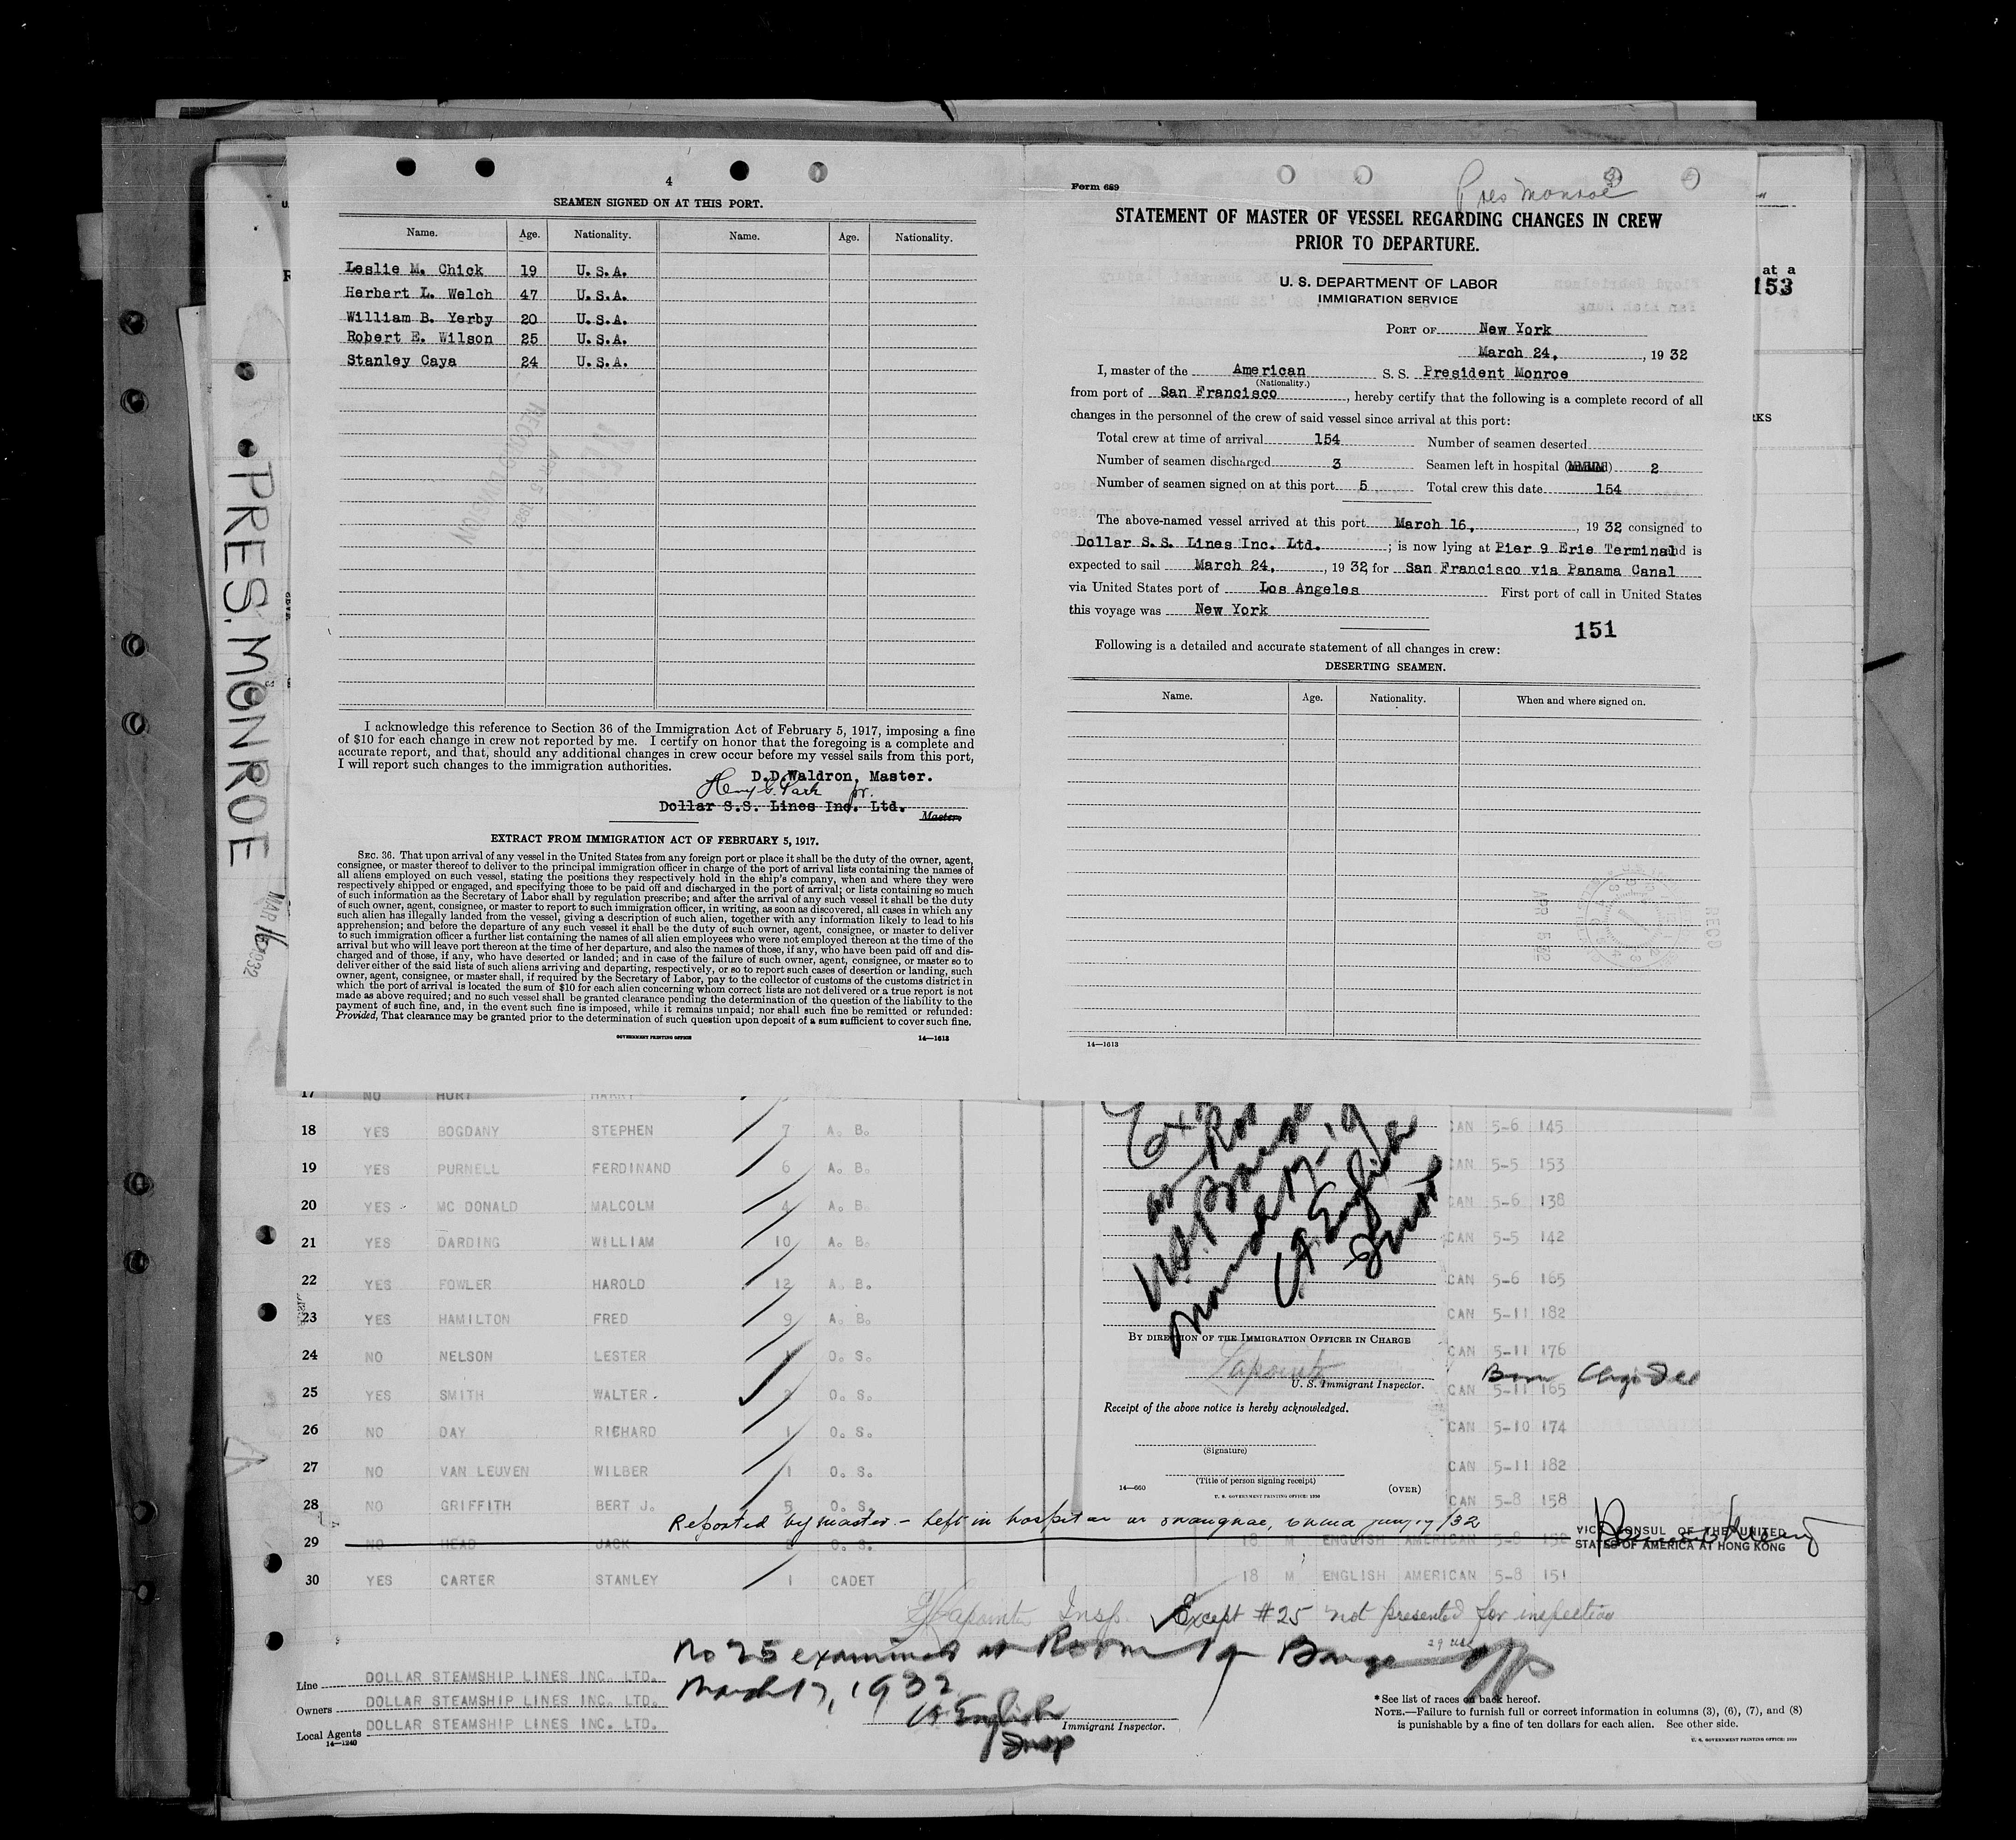 4
SEAMEN SIGNED ON AT THIS PORT.
Name. Age. Nationality. Name. Age. Nationality.
Leslie M. Chick 19 U.S.A.
Herbert L. Welch 47 U.S.A.
William B. Yerby 20 U.S.A.
Robert E. Wilson 25 U.S.A.
Stanley Caya 24 U.S.A.
I acknowledge this reference to Section 36 of the Immigration Act of February 5, 1917, imposing a fine
of $10 for each change in crew not reported by me. I certify on honor that the foregoing is a complete and
accurate report, and that, should any additional changes in crew occur before my vessel sails from this port,
I will report such changes to the immigration authorities.
D.D.Waldron, Master.
Henry G. Park jr.
Dollar S.S. Lines Inc. Ltd.
Master.
EXTRACT FROM IMMIGRATION ACT OF FEBRUARY 5, 1917.
SEC. 36. That upon arrival of any vessel in the United States from any foreign port or place it shall be the duty of the owner, agent,
consignee, or master thereof to deliver to the principal immigration officer in charge of the port of arrival lists containing the names of
all aliens employed on such vessel, stating the positions they respectively hold in the ship's company, when and where they were
respectively shipped or engaged, and specifying those to be paid off and discharged in the port of arrival; or lists containing so much
of such information as the Secretary of Labor shall by regulation prescribe; and after the arrival of any such vessel it shall be the duty
of such owner, agent, consignee, or master to report to such immigration officer, in writing, as soon as discovered, all cases in which any
such alien has illegally landed from the vessel, giving a description of such alien, together with any information likely to lead to his
apprehension; and before the departure of any such vessel it shall be the duty of such owner, agent, consignee, or master to deliver
to such immigration officer a further list containing the names of all alien employees who were not employed thereon at the time of the
arrival but who will leave port thereon at the time of her departure, and also the names of those, if any, who have been paid off and dis-
charged and of those, if any, who have deserted or landed; and in case of the failure of such owner, agent, consignee, or master so to
deliver either of the said lists of such aliens arriving and departing, respectively, or so to report such cases of desertion or landing, such
owner, agent, consignee, or master shall, if required by the Secretary of Labor, pay to the collector of customs of the customs district in
which the port of arrival is located the sum of $10 for each alien concerning whom correct lists are not delivered or a true report is not
made as above required; and no such vessel shall be granted clearance pending the determination of the question of the liability to the
payment of such fine, and, in the event such fine is imposed, while it remains unpaid; nor shall such fine be remitted or refunded:
Provided, That clearance may be granted prior to the determination of such question upon deposit of a sum sufficient to cover such fine.
GOVERNMENT PRINTING OFFICE 14—1613
Form 689
Pres Monroe
STATEMENT OF MASTER OF VESSEL REGARDING CHANGES IN CREW
PRIOR TO DEPARTURE.
U. S. DEPARTMENT OF LABOR
IMMIGRATION SERVICE
PORT OF New York
March 24, , 1932
I, master of the American S. S. President Monroe
(Nationality.)
from port of San Francisco , hereby certify that the following is a complete record of all
changes in the personnel of the crew of said vessel since arrival at this port:
Total crew at time of arrival 154 Number of seamen deserted
Number of seamen discharged 3 Seamen left in hospital 2
Number of seamen signed on at this port 5 Total crew this date 154
The above-named vessel arrived at this port March 16, , 1932 consigned to
Dollar S.S. Lines Inc. Ltd. ; is now lying at Pier 9 Erie Terminal and is
expected to sail March 24, , 1932, for San Francisco via Panama Canal
via United States port of Los Angeles First port of call in United States
this voyage was New York
151
Following is a detailed and accurate statement of all changes in crew:
DESERTING SEAMEN.
Name. Age. Nationality. When and where signed on.
14—1613
at a
153
RKS
PRES. MONROE
MAR 16 1932
17 NO HURT HARRY
18 YES BOGDANY STEPHEN 7 A. B. CAN 5-6 145
19 YES PURNELL FERDINAND 6 A. B. CAN 5-5 153
20 YES MC DONALD MALCOLM 4 A. B. CAN 5-6 138
21 YES DARDING WILLIAM 10 A. B. CAN 5-5 142
22 YES FOWLER HAROLD 12 A. B. CAN 5-6 165
23 YES HAMILTON FRED 9 A. B. CAN 5-11 182
24 NO NELSON LESTER 1 O. S. CAN 5-11 176
25 YES SMITH WALTER. 2 O. S. CAN 5-11 165
26 NO DAY RICHARD 1 O. S. CAN 5-10 174
27 NO VAN LEUVEN WILBER 1 O. S. CAN 5-11 182
28 NO GRIFFITH BERT J. 5 O. S. CAN 5-8 158
Reported by master - Left in hospital at Shanghai, China
29 NO HEAD JACK 2 O. S. 18 M ENGLISH AMERICAN 5-8 152
30 YES CARTER STANLEY 1 CADET 18 M ENGLISH AMERICAN 5-8 151
BY DIRECTION OF THE IMMIGRATION OFFICER IN CHARGE
Lapointe
U. S. Immigrant Inspector.
Receipt of the above notice is hereby acknowledged.
(Signature)
(Title of person signing receipt)
14—660 U. S. GOVERNMENT PRINTING OFFICE: 1930 (OVER)
VICE CONSUL OF THE UNITED
STATES OF AMERICA AT HONG KONG
Lapointe Insp. Except #25 not presented for inspection
No 25 examined at Room 19 Barge Off
March 17, 1932
English
Insp
Immigrant Inspector.
Line DOLLAR STEAMSHIP LINES INC. LTD.
Owners DOLLAR STEAMSHIP LINES INC. LTD.
Local Agents DOLLAR STEAMSHIP LINES INC. LTD.
14—1240
*See list of races on back hereof.
NOTE.—Failure to furnish full or correct information in columns (3), (6), (7), and (8)
is punishable by a fine of ten dollars for each alien. See other side.
U. S. GOVERNMENT PRINTING OFFICE: 1930